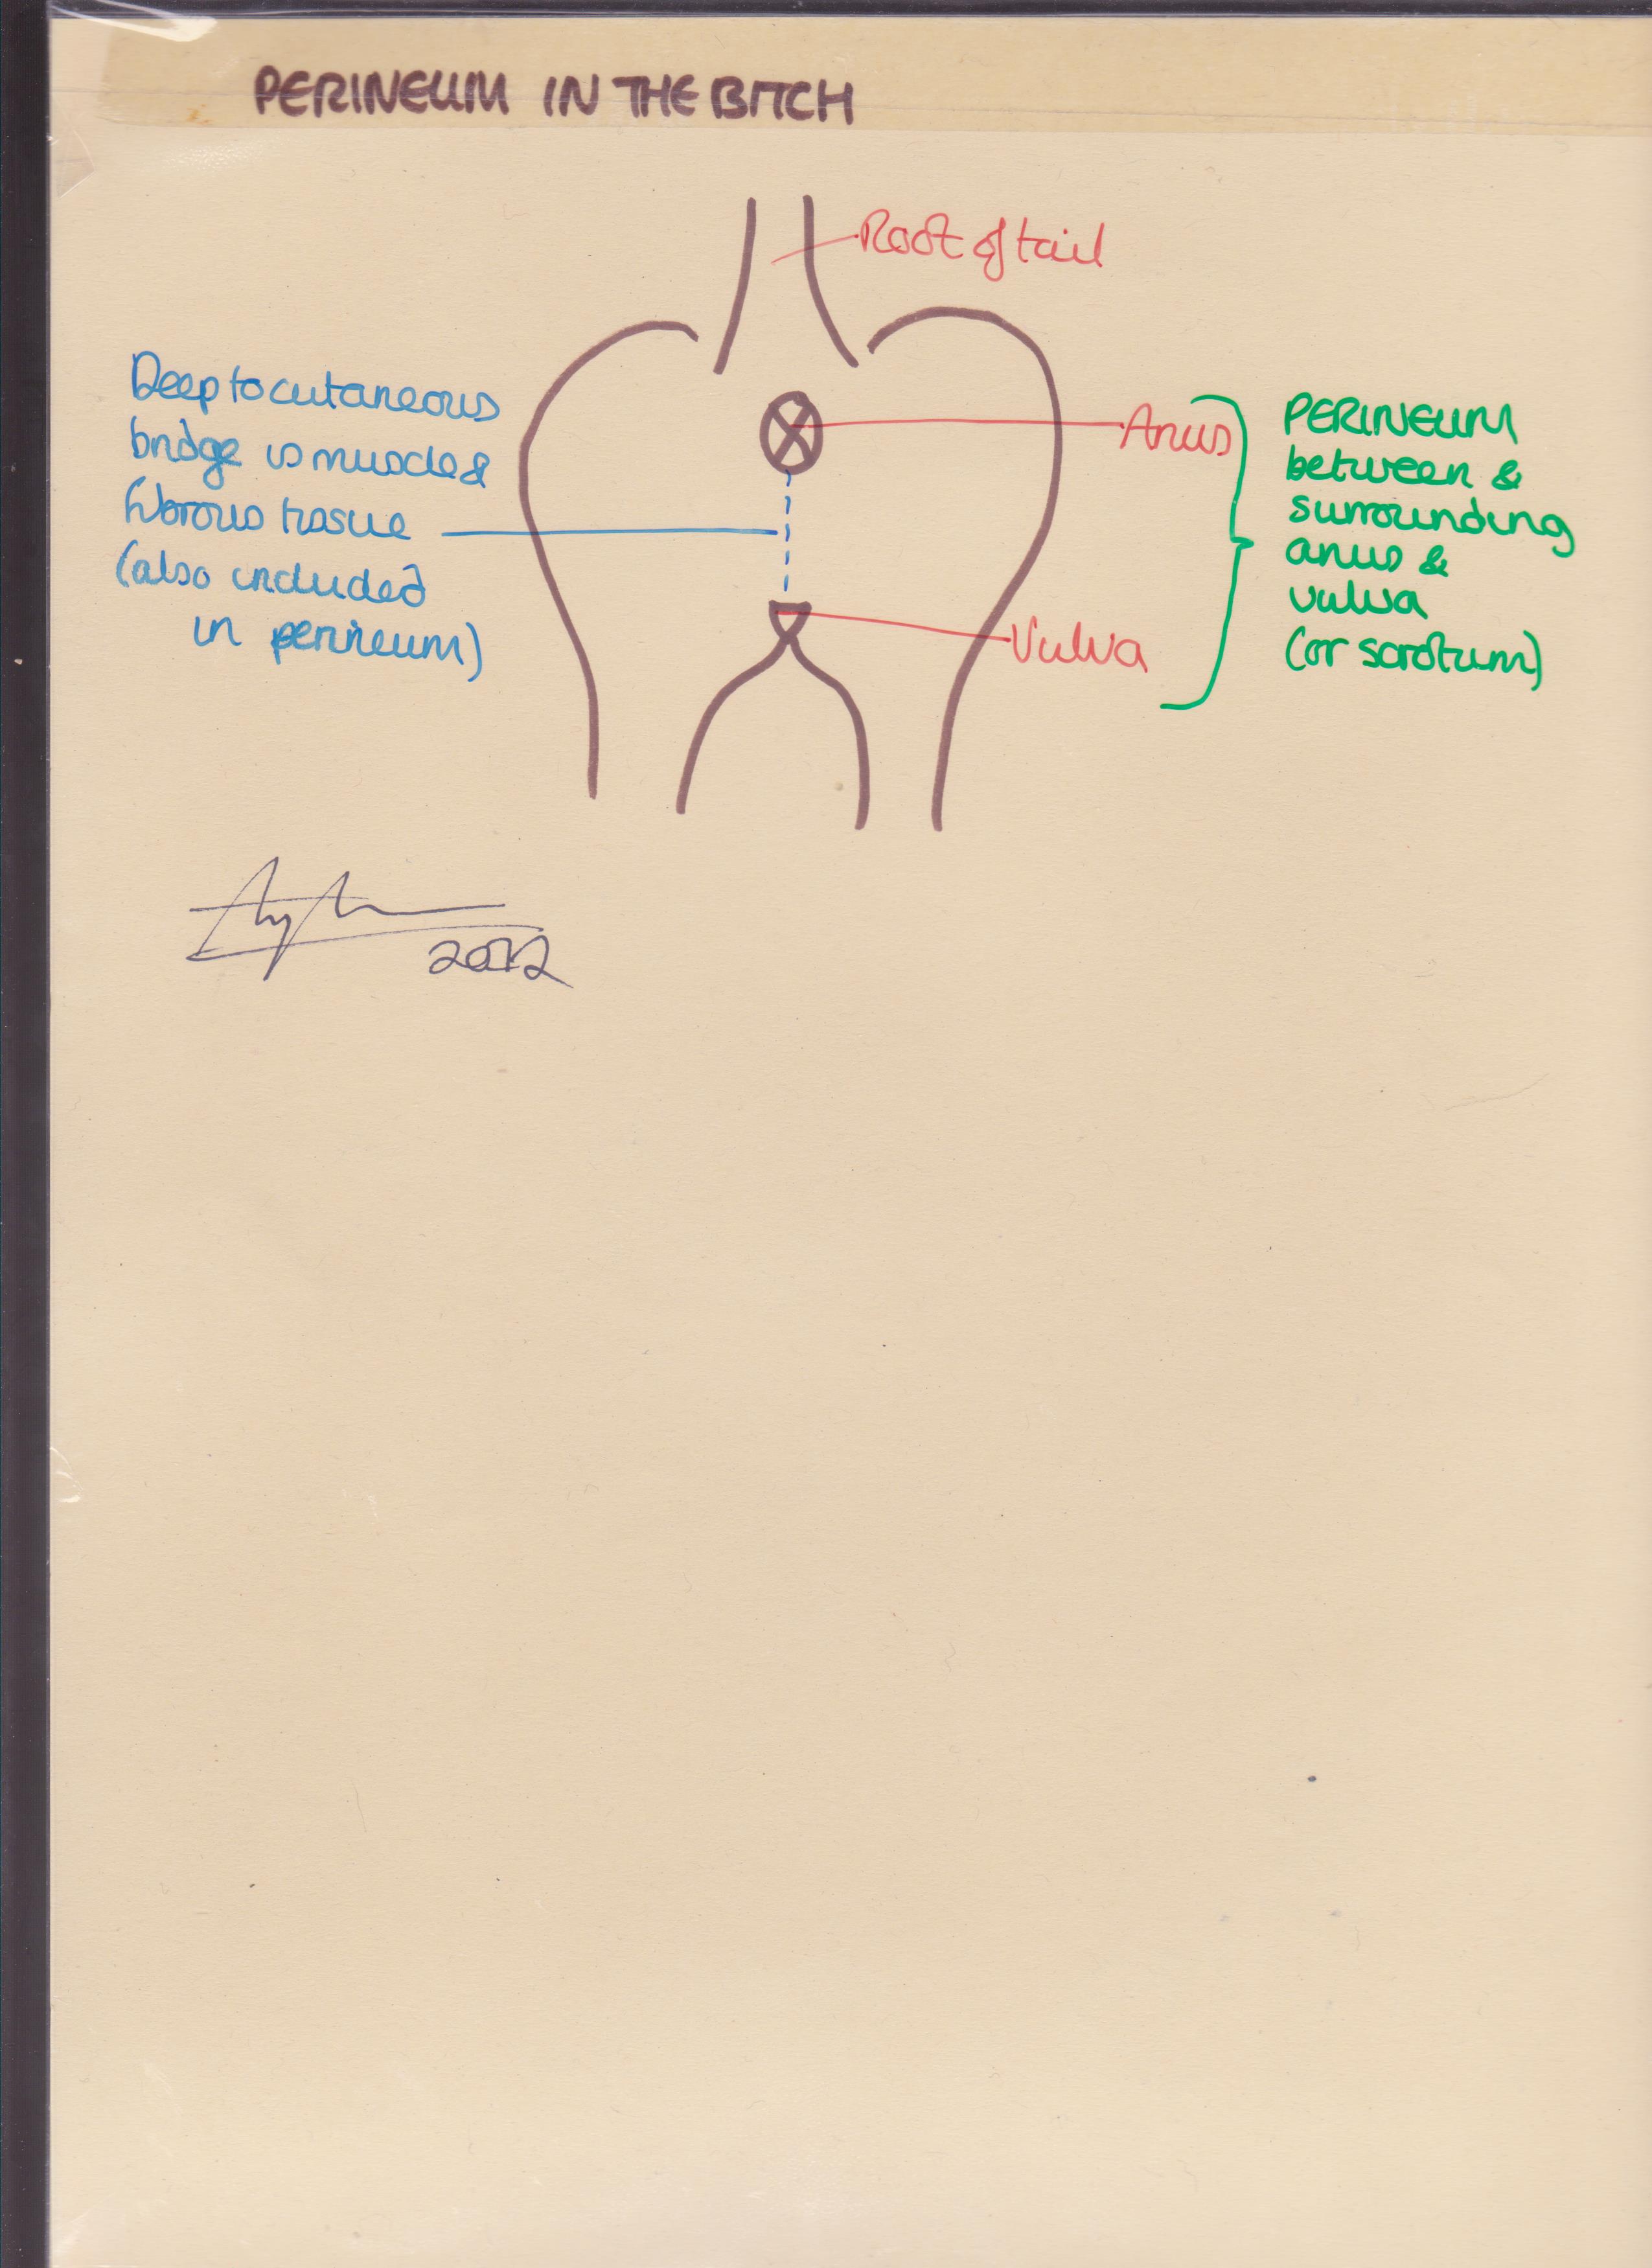 PERINEUM IN THE BITCH
Root of tail
Deep to cutaneous
bridge is muscle &
fibrous tissue
(also included
in perineum)
Anus
Vulva
PERINEUM
between &
surrounding
anus &
vulva
(or scrotum)
2012